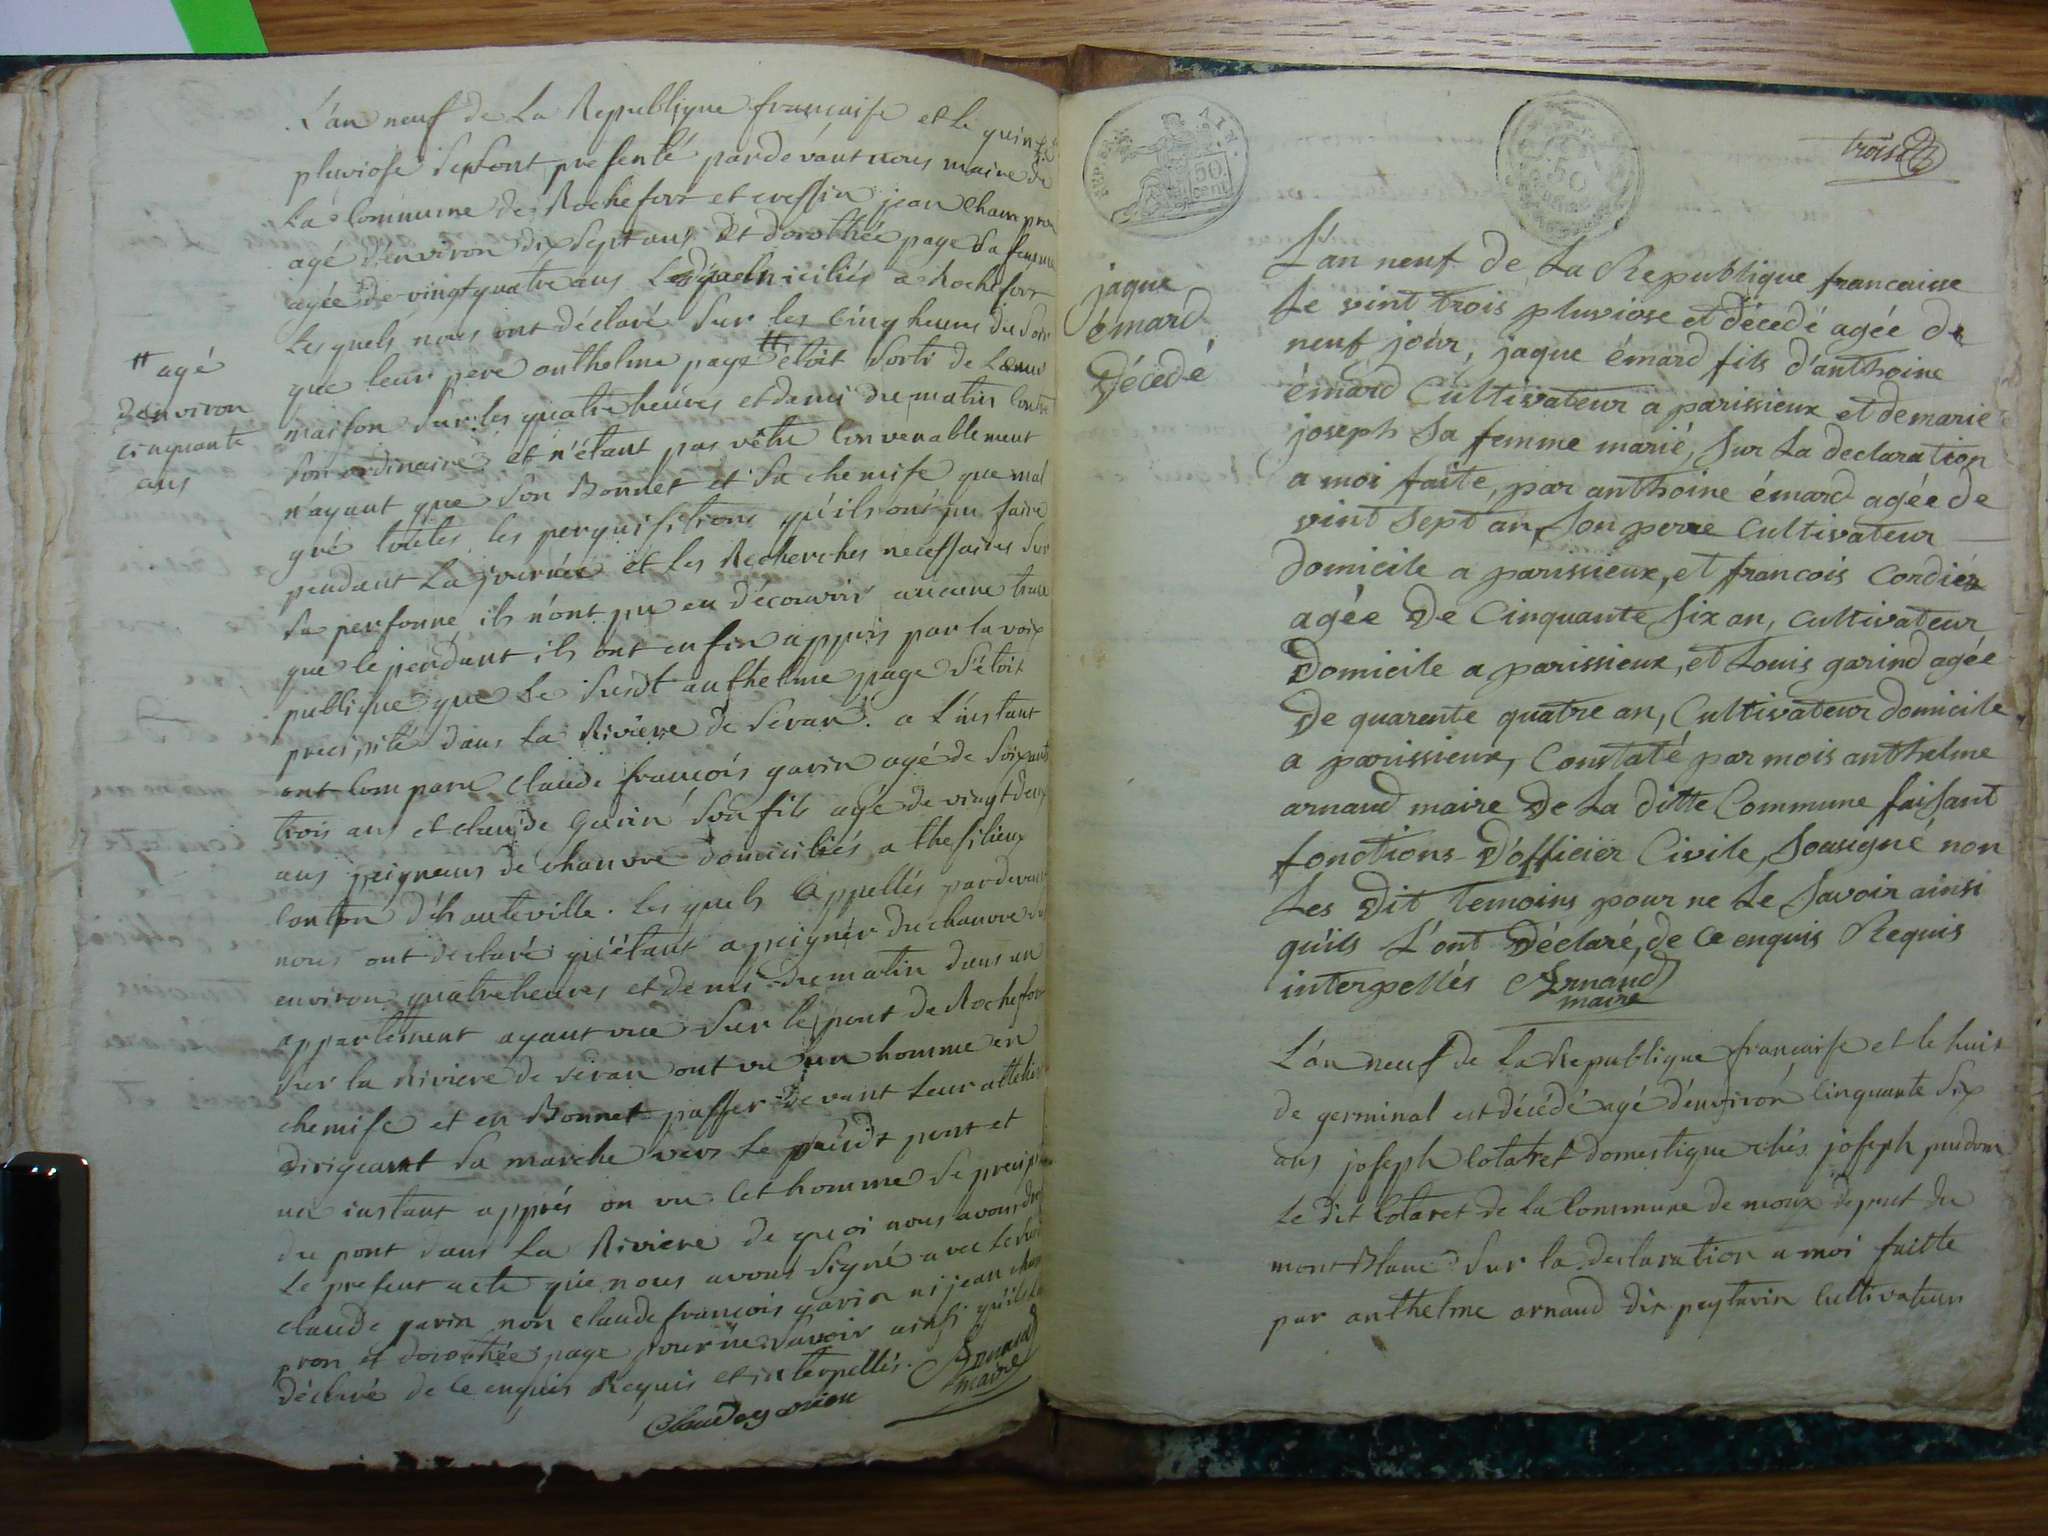 L'an neuf de La Republique françaisse et le quinze
pluviose Se sont presenté pardevant nous maire de
La Commune de Rochefort et cressin jean Champron
agé d'environ dix sept ans Et dorothée page Sa femme
agée de vingt quatre ans domiciliés a Rochefort
Lesquels nous ont déclaré Sur les Cinq heures du Soir
que leur pere anthelme page # etoit Sorti de Leur
maison Sur les quatre heures et demi du matin Contre
Son ordinaire et n'étant pas vêtu Convenablement
n'ayant que Son Bonnet et Sa chemise que mal
gré toutes les perquisitions qu'ils ont pu faire
pendant La journée et les Recherches necessaires Sur
Sa personne ils n'ont pu en découvrir aucune trace
que le pendant ils ont enfin appris par la voix
publique que Le Susdt anthelme page S'étoit
precipité dans La Riviere de Seran. a L'instant
ont Comparu Claude françois garin agé de Soixante
trois ans et claude Garin Son fils agé de vingt deux
ans peigneurs de chanvre domiciliés a thesilieux
Canton d'hauteville. Les quels appellés pardevant
nous ont declaré qu'étant a peigner du chanvre Sur
environ quatre heures et demi du matin dans un
appartement ayant vue Sur le pont de Rochefort
Sur la Riviere de Seran ont vu un homme en
chemise et en Bonnet passer devant Leur attelier
dirigeant Sa marche vers Le susdt pont et
un instant apprés on vu Cet homme Se precipiter
du pont dans La Riviere de quoi nous avons dressé
Le present acte que nous avons Signé avec Le dit
claude garin non claude françois garin ni jean cham
pron et dorothée page pour ne Savoir ainsi qu'ils l'ont
déclaré de Ce enquis Requis et interpellés. Arnaud
maire
Claude garin
# agé
d'environ
cinquante
ans
AIN.
50
cent
50
troise
jaque
émard
Décedé
L'an neuf de La Republique francaise
Le vint trois pluviose et décedé agée de
neuf joúr, jaque émard fils d'anthoine
émard Cultivateur a parissieux et de marie
joseph Sa femme marié, Sur La declaration
a moi faite, par anthoine émard agée de
vint Sept an, Son perre Cultivateur
Domicile a parissieux, et francois Cordier
agée De Cinquante Six an, Cultivateur
Domicile a parissieux, et Louis garind agée
De quarente quatre an, Cultivateur domicile
a parissieux, Constaté par mois anthelme
arnaud maire De La ditte Commune faisant
fonctions D'officier Civile, Sousigné non
Les Dit temoins pour ne Le Savoir ainsi
quils L'ont Déclaré, de Ce enquis Requis
interpellés Arnaud
maire
L'an neuf de La Republique françaisse et le huit
de germinal est décédé agé d'environ Cinquante Six
ans joseph Cotaret domestique chés joseph prudom
Le dit Cotaret de la Commune de moux deput du
mont Blanc Sur la declaration a moi faitte
par anthelme arnaud dit peytavin Cultivateur